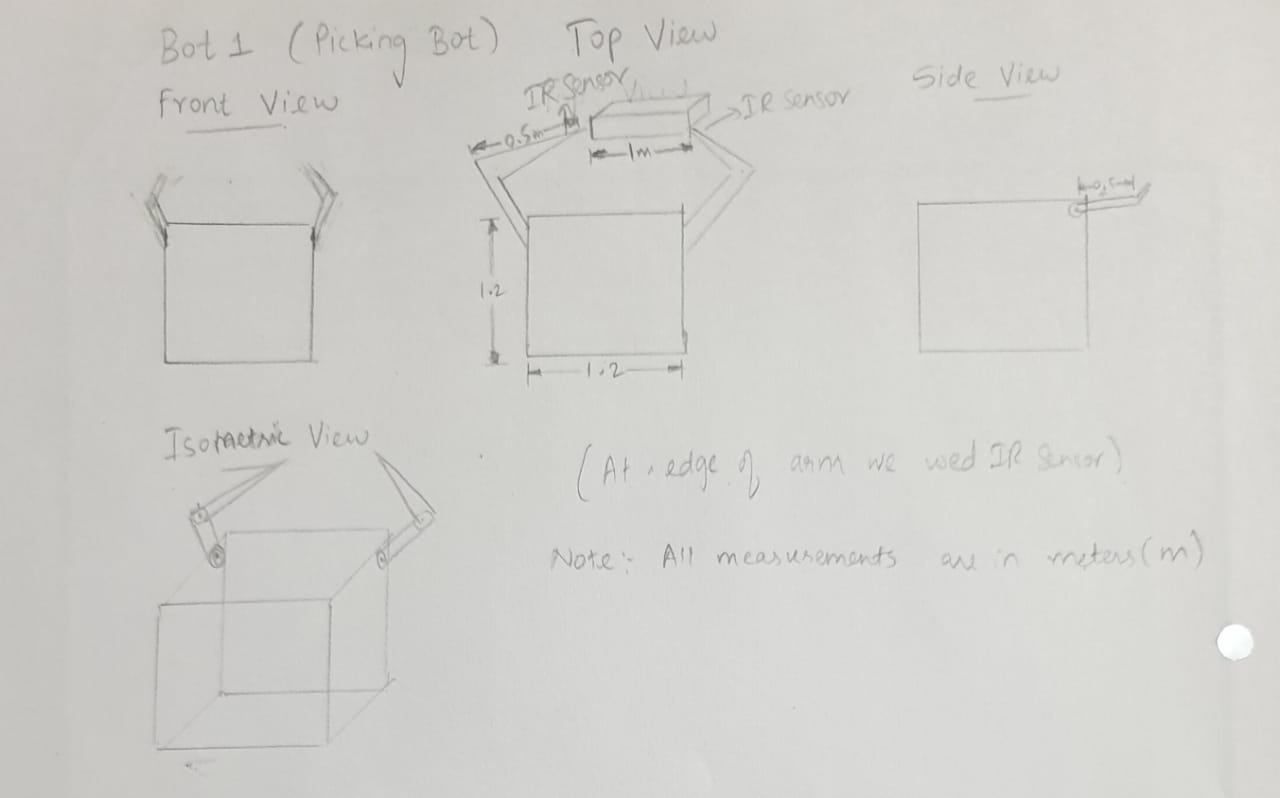 Bot 1 (Picking Bot)
Top View
Front View
IR Sensor
IR Sensor
Side View
0.5m
1m
0.5
1.2
1.2
Isometric View
(At edge of arm we used IR Sensor)
Note:- All measurements are in meters(m)